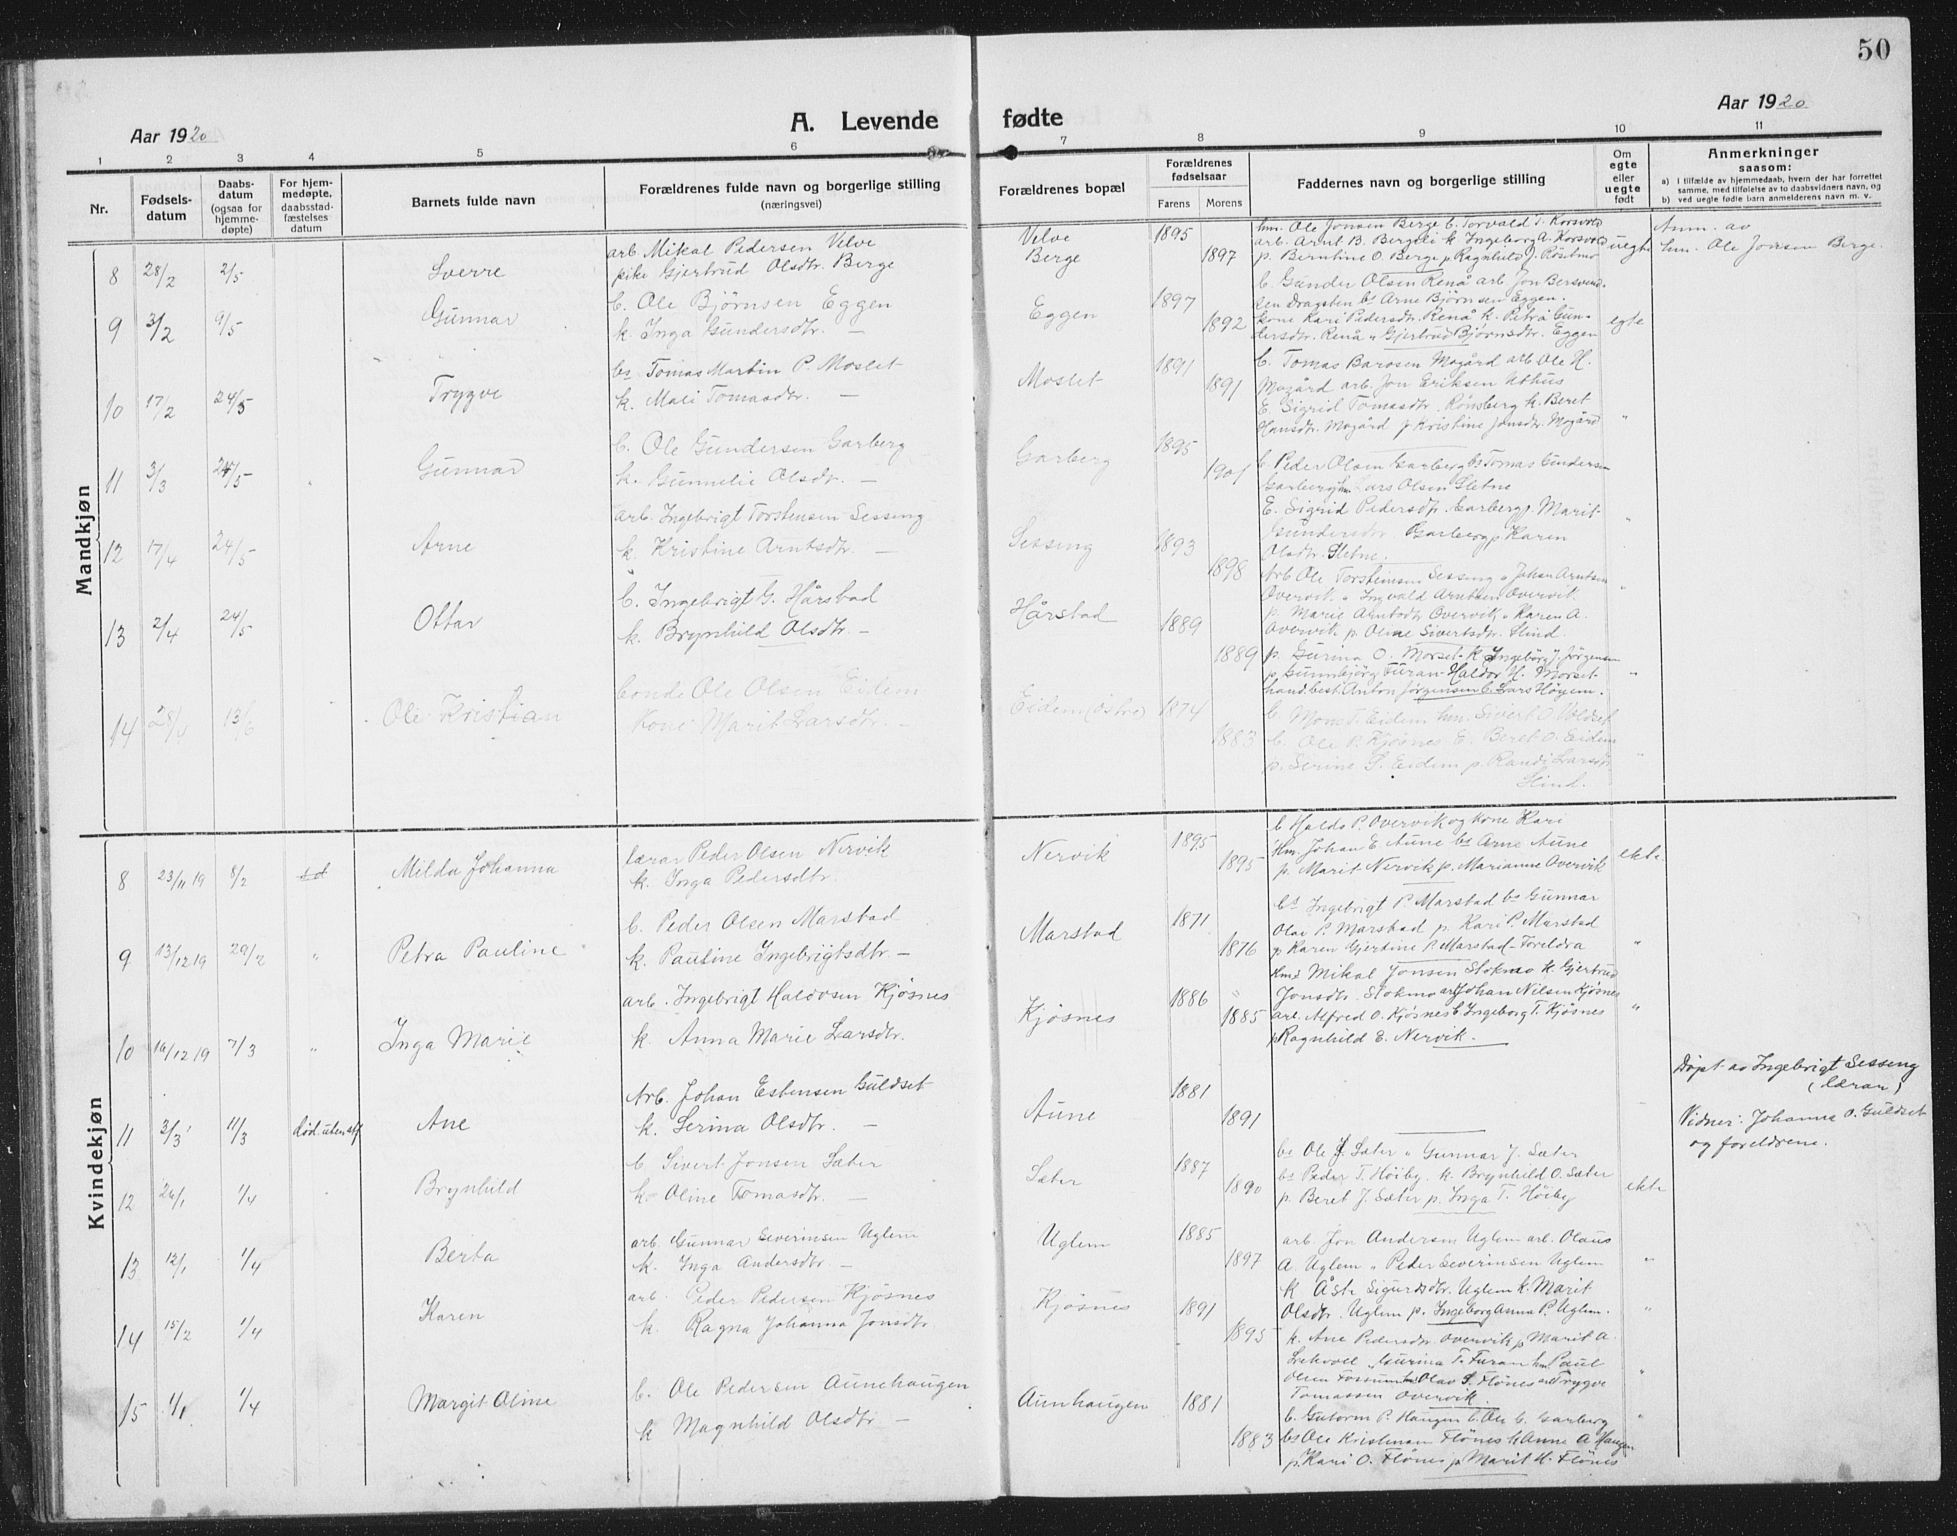 50
Aar 1920
A. Levende
fødte
Aar 1920
1 2 3 4 5 6 7 8 9 10 11
Nr.
Fødsels-
datum
Daabs-
datum
(ogsaa for
hjemme-
døpte)
For hjem-
medøpte,
daabsstad-
fæstelses
datum
Barnets fulde navn
Forældrenes fulde navn og borgerlige stilling
(næringsvei)
Forældrenes bopæl
Forældrenes
fødselsaar
Farens Morens
Faddernes navn og borgerlige stilling
Om
egte
eller
uegte
født
Anmerkninger
saasom:
a) I tilfælde av hjemmedaab, hvem der har forrettet
samme, med tilføielse av to daabsvidners navn, og
b) ved uegte fødte barn anmelderens navn m. v.
Mandkjøn
8 28/2 2/5 Sverre
arb. Mikal Pedersen Velve
pike Gjertrud Olsdtr. Berge
Velve
Berge
1895
1897
hm. Ole Jonsen Berge b. Torvald T. Korsvold
arb. Arnt B. Bergli k. Ingeborg A. Korsvold
p. Berntine O. Berge p. Ragnhild J. Röstmo
uegte
Anm. av
hm. Ole Jonsen Berge.
9 3/2 9/5 Gunnar
b. Ole Björnsen Eggen
k. Inga Gundersdtr. —
Eggen
1897
1892
b. Gunder Olsen Renå arb Jon Bersvend-
sen Dragsten bs Arne Björnsen Eggen.
kone Kari Pedersdtr. Renå k. Petra Gun-
dersdtr. Renå " Gjertrud Björnsdtr. Eggen
egte
10 17/2 24/5 Trygve
bs Tomas Martin P. Moslet
k. Mali Tomasdtr. —
Moslet
1891
1891
b. Tomas Barosen Mogård arb. Ole H.
Mogård arb. Jon Eriksen Uthus
E. Sigrid Tomasdtr. Rönsberg k. Beret
Hansdtr. Mogård p Kristine Jonsdtr. Mogård
"
11 3/3 24/5 Gunnar
b. Ole Gundersen Garberg
k. Gunnelie Olsdtr. —
Garberg
1895
1901
b Peder Olsen Garberg bs Tomas Gundersen
Garberg hm Lars Olsen Sletne
E. Sigrid Pedersdtr. Garberg p. Marit
Gundersdtr Garberg p Karen
Olsdtr. Sletne.
"
12 17/4 24/5 Arne
arb. Ingebrigt Torstensen Sesseng
k. Kristine Arntsdtr. —
Sesseng
1893
1898
Arb Ole Torsteinsen Sesseng " Johan Arntsen
Overvik " Ingvald Arntsen Overvik
p. Marie Arntsdtr Overvik " Karen A.
Overvik p. Oline Sivertsdtr. Slind.
"
13 2/4 24/5 Ottar
b. Ingebrigt G. Hårstad
k. Brynhild Olsdtr. —
Hårstad
1889
1889
p. Gurina O. Morset k Ingeborg Jörgensen
p Gunnbjörg Furan Haldor H. Morset
hand.best. Anton Jörgensen b. Lars Högem.
"
14 28/4 13/6 Ole Kristian
bonde Ole Olsen Eidem
Kone Marit Larsdtr. —
Eidem (östre)
1874
1883
b. Mons T. Eidem hm. Sivert O. Voldset
b. Ole P. Kjösnes E. Beret O. Eidem
p. Serine S. Eidem p. Randi Larsdtr
Slind.
"
Kvindekjøn
8 23/11 19 8/2 Milda Johanna
lærar Peder Olsen Nervik
k. Inga Pedersdtr.
Nervik
1895
1895
b Haldo P. Overvik og kone Kari
Hm. Johan E Aune bs Arne Aune
p. Marit Nervik p. Marianne Overvik
ekte
9 13/12 19 29/2 " Petra Pauline
b. Peder Olsen Marstad
k. Pauline Ingebrigtsdtr. —
Marstad
1871
1876
bs Ingebrigt P Marstad bs Gunnar
Olai P. Marstad p. Kari P. Marstad
p Karen Gjertine P. Marstad Foreldra
"
10 16/12 19 7/3 " Inga Marie
arb. Ingebrigt Haldosen Kjösnes
k. Anna Marie Larsdtr.
Kjösnes
1886
1885
Hmd Mikal Jonsen Stokmo k. Gjertrud
Jonsdtr. Stokmo arb Johan Nilsen Kjösnes
arb. Alfred O. Kjösnes E Ingeborg T. Kjösnes
p Ragnhild E. Nervik.
"
11 3/3 11/3 död. uten stf Ane
Arb. Johan Estensen Guldset
k. Serina Olsdtr. —
Aune
1881
1891
Döpt av Ingebrigt Sesseng
(lærar)
Vidner: Johanna O. Guldset
og foreldrene.
12 26/1 1/4 Brynhild
b. Sivert Jonsen Sæter
k. Oline Tomasdtr. —
Sæter
1887
1890
bs Ole J. Sæter " Gunnar J. Sæter
bs Peder T. Höiby. k. Brynhild O. Sæter
p. Beret J. Sæter p. Inga T. Höiby
ekte
13 12/1 1/4 Berta
arb. Gunnar Severinsen Uglem
k. Inga Andersdtr —
Uglem
1885
1897
arb. Jon Andersen Uglem arb. Olaus
A Uglem " Peder Severinsen Uglem
k Åste Sigurdsdtr. Uglem k. Marit
Olsdtr. Uglem p. Ingeborg Anna P. Uglem.
"
14 15/2 1/4 Karen
arb. Peder Pedersen Kjösnes
k. Ragna Johanna Jonsdtr.
Kjösnes
1891
1895
k. Ane Pedersdtr Overvik p Marit A.
" Gurina T. Furan hm Paul
Olsen Fossum bs Olav S. Flönes arb Trygve
Tomassen Overvik.
"
15 1/1 1/4 Margit Oline
b. Ole Pedersen Aunehaugen
k Magnhild Olsdtr —
Aunhaugen
1881
1883
b. Gutorm P. Haugen b. Ole C. Garberg
bs Ole Kristensen Flönes k Anne A Haugen
p. Kari O. Flönes p Marit H. Flönes
"